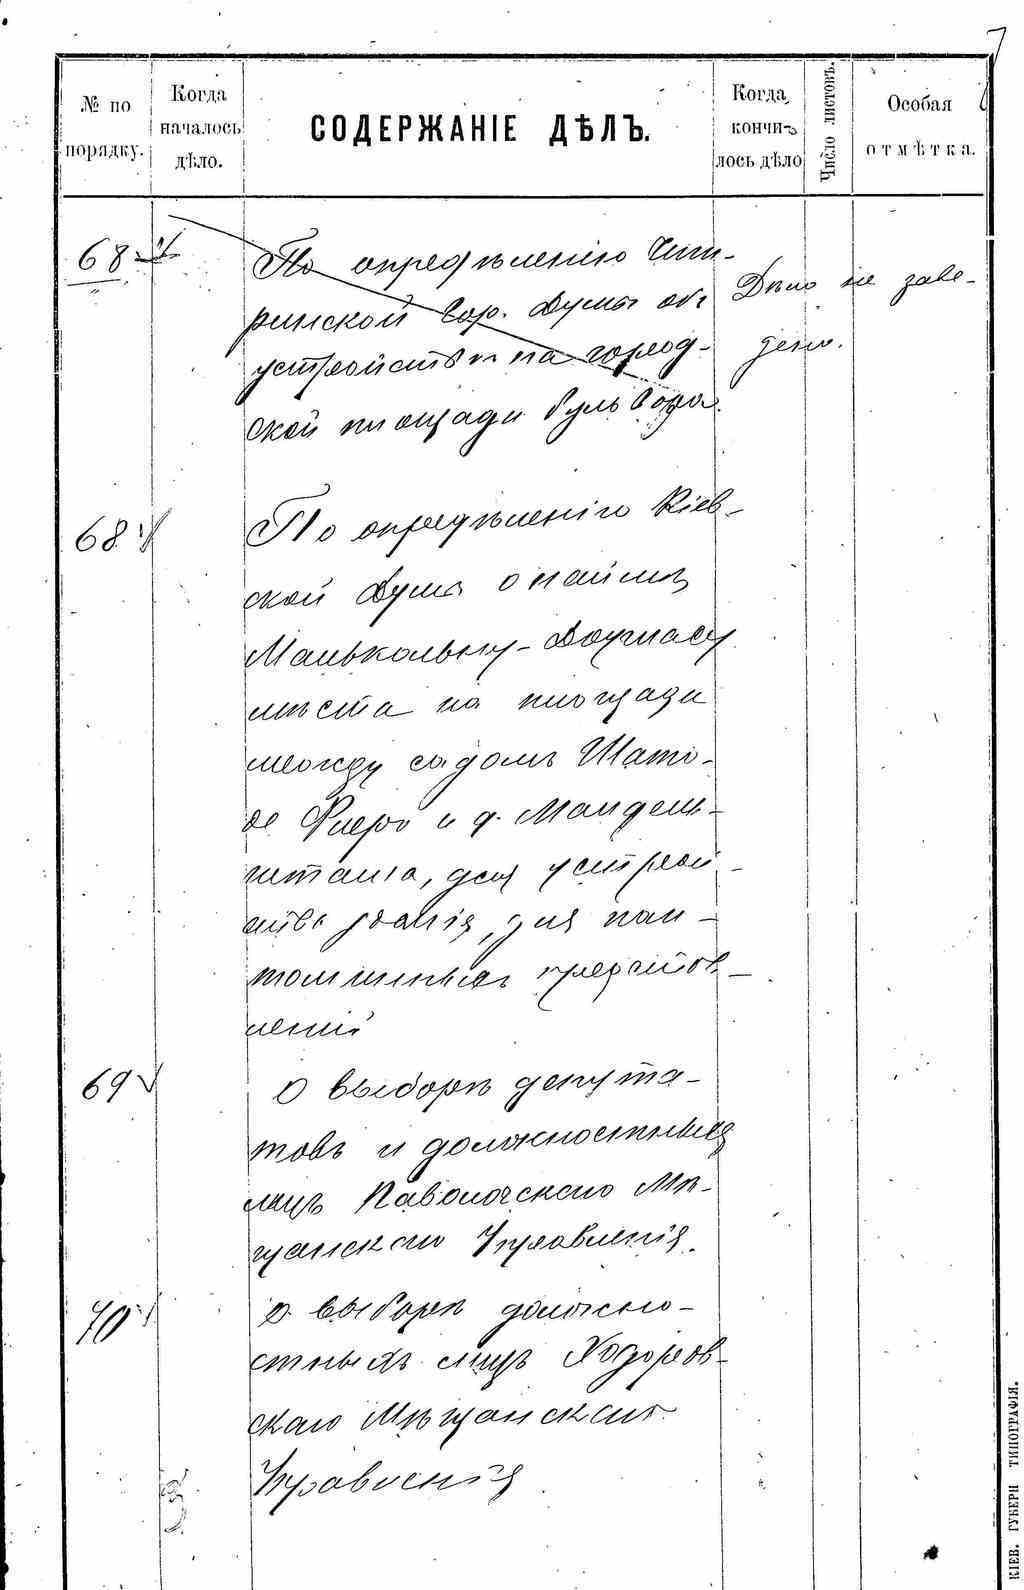 7
№ по порядку.
Когда началось дѣло.
СОДЕРЖАНІЕ ДѢЛЪ.
Когда кончилось дѣло
Число листовъ.
Особая отмѣтка.
68
По опредѣленію Чиги-
ринской Гор. Думы объ
устройствѣ на город-
ской площади бульвара.
Дѣло не заве-
дено.
68
По опредѣленію Кіев-
ской Думы о наймѣ
Манькольну-Доугласу
мѣста на площади
между садомъ Шато-
де Флеръ и д. Мандель-
штама, для устрой-
ства зданія, для пан-
томимныхъ представ-
леній
69
О выборѣ депута-
товъ и должностныхъ
лицъ Паволочскаго Мѣ-
щанскаго Управленія.
70
О выборѣ должно-
стныхъ лицъ Ходоров-
скаго Мѣщанскаго
Управленія
КІЕВ. ГУБЕРН ТИПОГРАФІЯ.